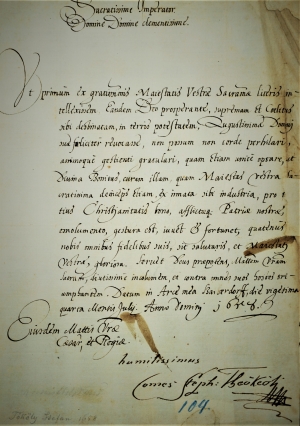 Sacratissime Imperator
Domine Domine clementissime.
Ut primum ex gratiosissimis Maiestatis Vestræ Sacramæ literis in-
tellexissem Eandem Deo prosperante, supremam et Cœlitus
sibi destinatam, in terris potestatem, Augustissimam Domum
suam feliciter revocasse, non possum non corde perhilari,
animoque gestienti gratulari, quam etiam animo opto, ut
Divina Bonitas, curam illam, quam Maiestas Vestra Sa-
cratissima etiam, ex innata sibi industria, pro to-
tius Christianitatis bono, afflictæque Patriæ nostræ,
emolumento, gestura est, iuvet et fortunet, quatenus
nobis omnibus fidelibus suis, sit salutaris, et Maiestati
Vestræ, gloriosa. Servet Deus præpotens, Mattem Vram
Sacram, diutissime incolumem, et contra omnes suos hostes tri-
umphantem. Datum in Arce mea die vigesima
quarta Mensis July. Anno Domini 1658.
Eiusdem Mattis Vræ
Cæsar. et Regiæ
humillissimus
Comes Steph: Theökeöly
104.